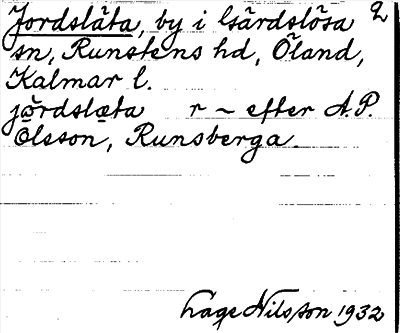 Jordsläta, by i Gärdslösa 2
sn, Runstens hd, Öland,
Kalmar l.
jo̊rdslæta r ~ efter A.P.
Olsson, Runsberga.
Lage Nilsson 1932